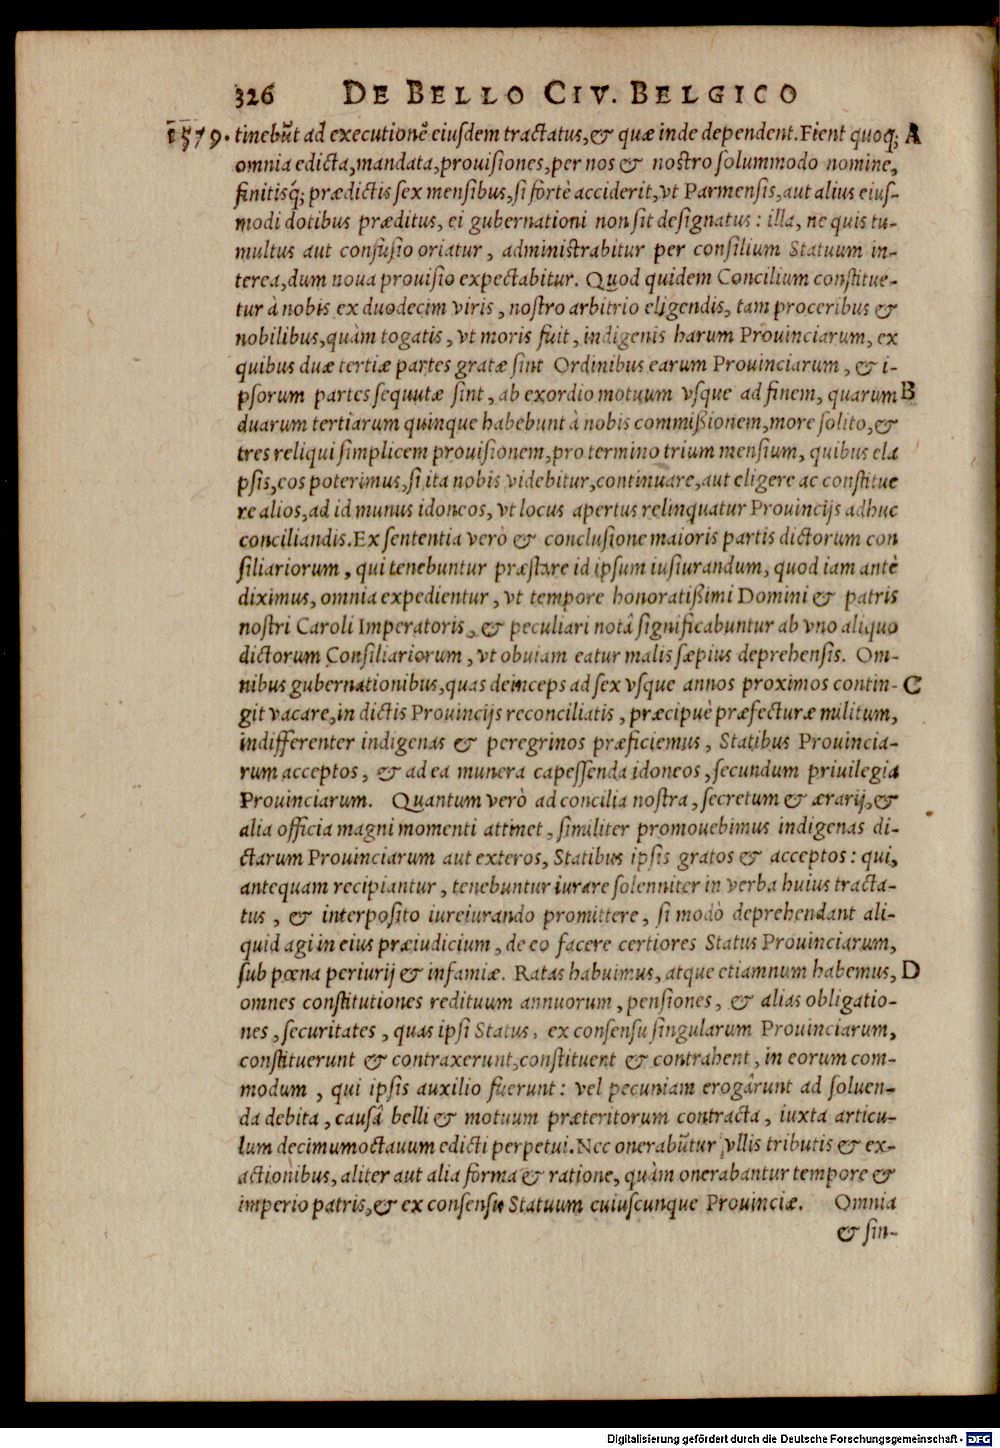 326 DE BELLO CIV. BELGICO
1579. tinebũt ad executionẽ eiuſdem tractatus,& quæ inde dependent. Fient quoq; A
omnia edicta,mandata,prouiſiones,per nos & noſtro ſolummodo nomine,
finitiſq́; prædictis ſex menſibus,ſi fortè acciderit,vt Parmenſis,aut alius eiuſ-
modi dotibus præditus, ei gubernationi non ſit deſignatus: illa, ne quis tu-
multus aut confuſio oriatur, adminiſtrabitur per conſilium Statuum in-
terea,dum noua prouiſio expectabitur. Quod quidem Concilium conſtitue-
tur à nobis ex duodecim viris, noſtro arbitrio eligendis, tam proceribus &
nobilibus,quàm togatis, vt moris fuit, indigenis harum Prouinciarum, ex
quibus duæ tertiæ partes gratæ ſint Ordinibus earum Prouinciarum, & i-
pſorum partes ſequutæ ſint, ab exordio motuum vſque ad finem, quarum B
duarum tertiarum quinque habebunt à nobis commißionem,more ſolito,&
tres reliqui ſimplicem prouiſionem,pro termino trium menſium, quibus ela
pſis,eos poterimus,ſi ita nobis videbitur,continuare,aut eligere ac conſtitue
re alios,ad id munus idoneos, vt locus apertus relinquatur Prouincijs adhuc
conciliandis. Ex ſententia verò & concluſione maioris partis dictorum con
ſiliariorum, qui tenebuntur præſtare id ipſum iuſiurandum, quod iam antè
diximus, omnia expedientur, vt tempore honoratißimi Domini & patris
noſtri Caroli Imperatoris, & peculiari notâ ſignificabuntur ab vno aliquo
dictorum Conſiliariorum, vt obuiam eatur malis ſæpius deprehenſis. Om-
nibus gubernationibus,quas deinceps ad ſex vſque annos proximos contin- C
git vacare,in dictis Prouincijs reconciliatis, præcipuè præfecturæ militum,
indifferenter indigenas & peregrinos præficiemus, Statibus Prouincia-
rum acceptos, & ad ea munera capeſſenda idoneos, ſecundum priuilegia
Prouinciarum. Quantum verò ad concilia noſtra, ſecretum & ærarij,&
alia officia magni momenti attinet, ſimiliter promouebimus indigenas di-
ctarum Prouinciarum aut exteros, Statibus ipſis gratos & acceptos: qui,
antequam recipiantur, tenebuntur iurare ſolenniter in verba huius tracta-
tus, & interpoſito iureiurando promittere, ſi modò deprehendant ali-
quid agi in eius præiudicium, de eo facere certiores Status Prouinciarum,
ſub pœna periurij & infamiæ. Ratas habuimus, atque etiamnum habemus, D
omnes conſtitutiones redituum annuorum, penſiones, & alias obligatio-
nes, ſecuritates, quas ipſi Status, ex conſenſu ſingularum Prouinciarum,
conſtituerunt & contraxerunt,conſtituent & contrahent, in eorum com-
modum, qui ipſis auxilio fuerunt: vel pecuniam erogârunt ad ſoluen-
da debita, causâ belli & motuum præteritorum contracta, iuxta articu-
lum decimumoctauum edicti perpetui. Nec onerabũtur vllis tributis & ex-
actionibus, aliter aut alia forma & ratione, quàm onerabantur tempore &
imperio patris,& ex conſenſu Statuum cuiuſcunque Prouinciæ. Omnia
& ſin-
Digitalisierung gefördert durch die Deutsche Forschungsgemeinschaft - DFG